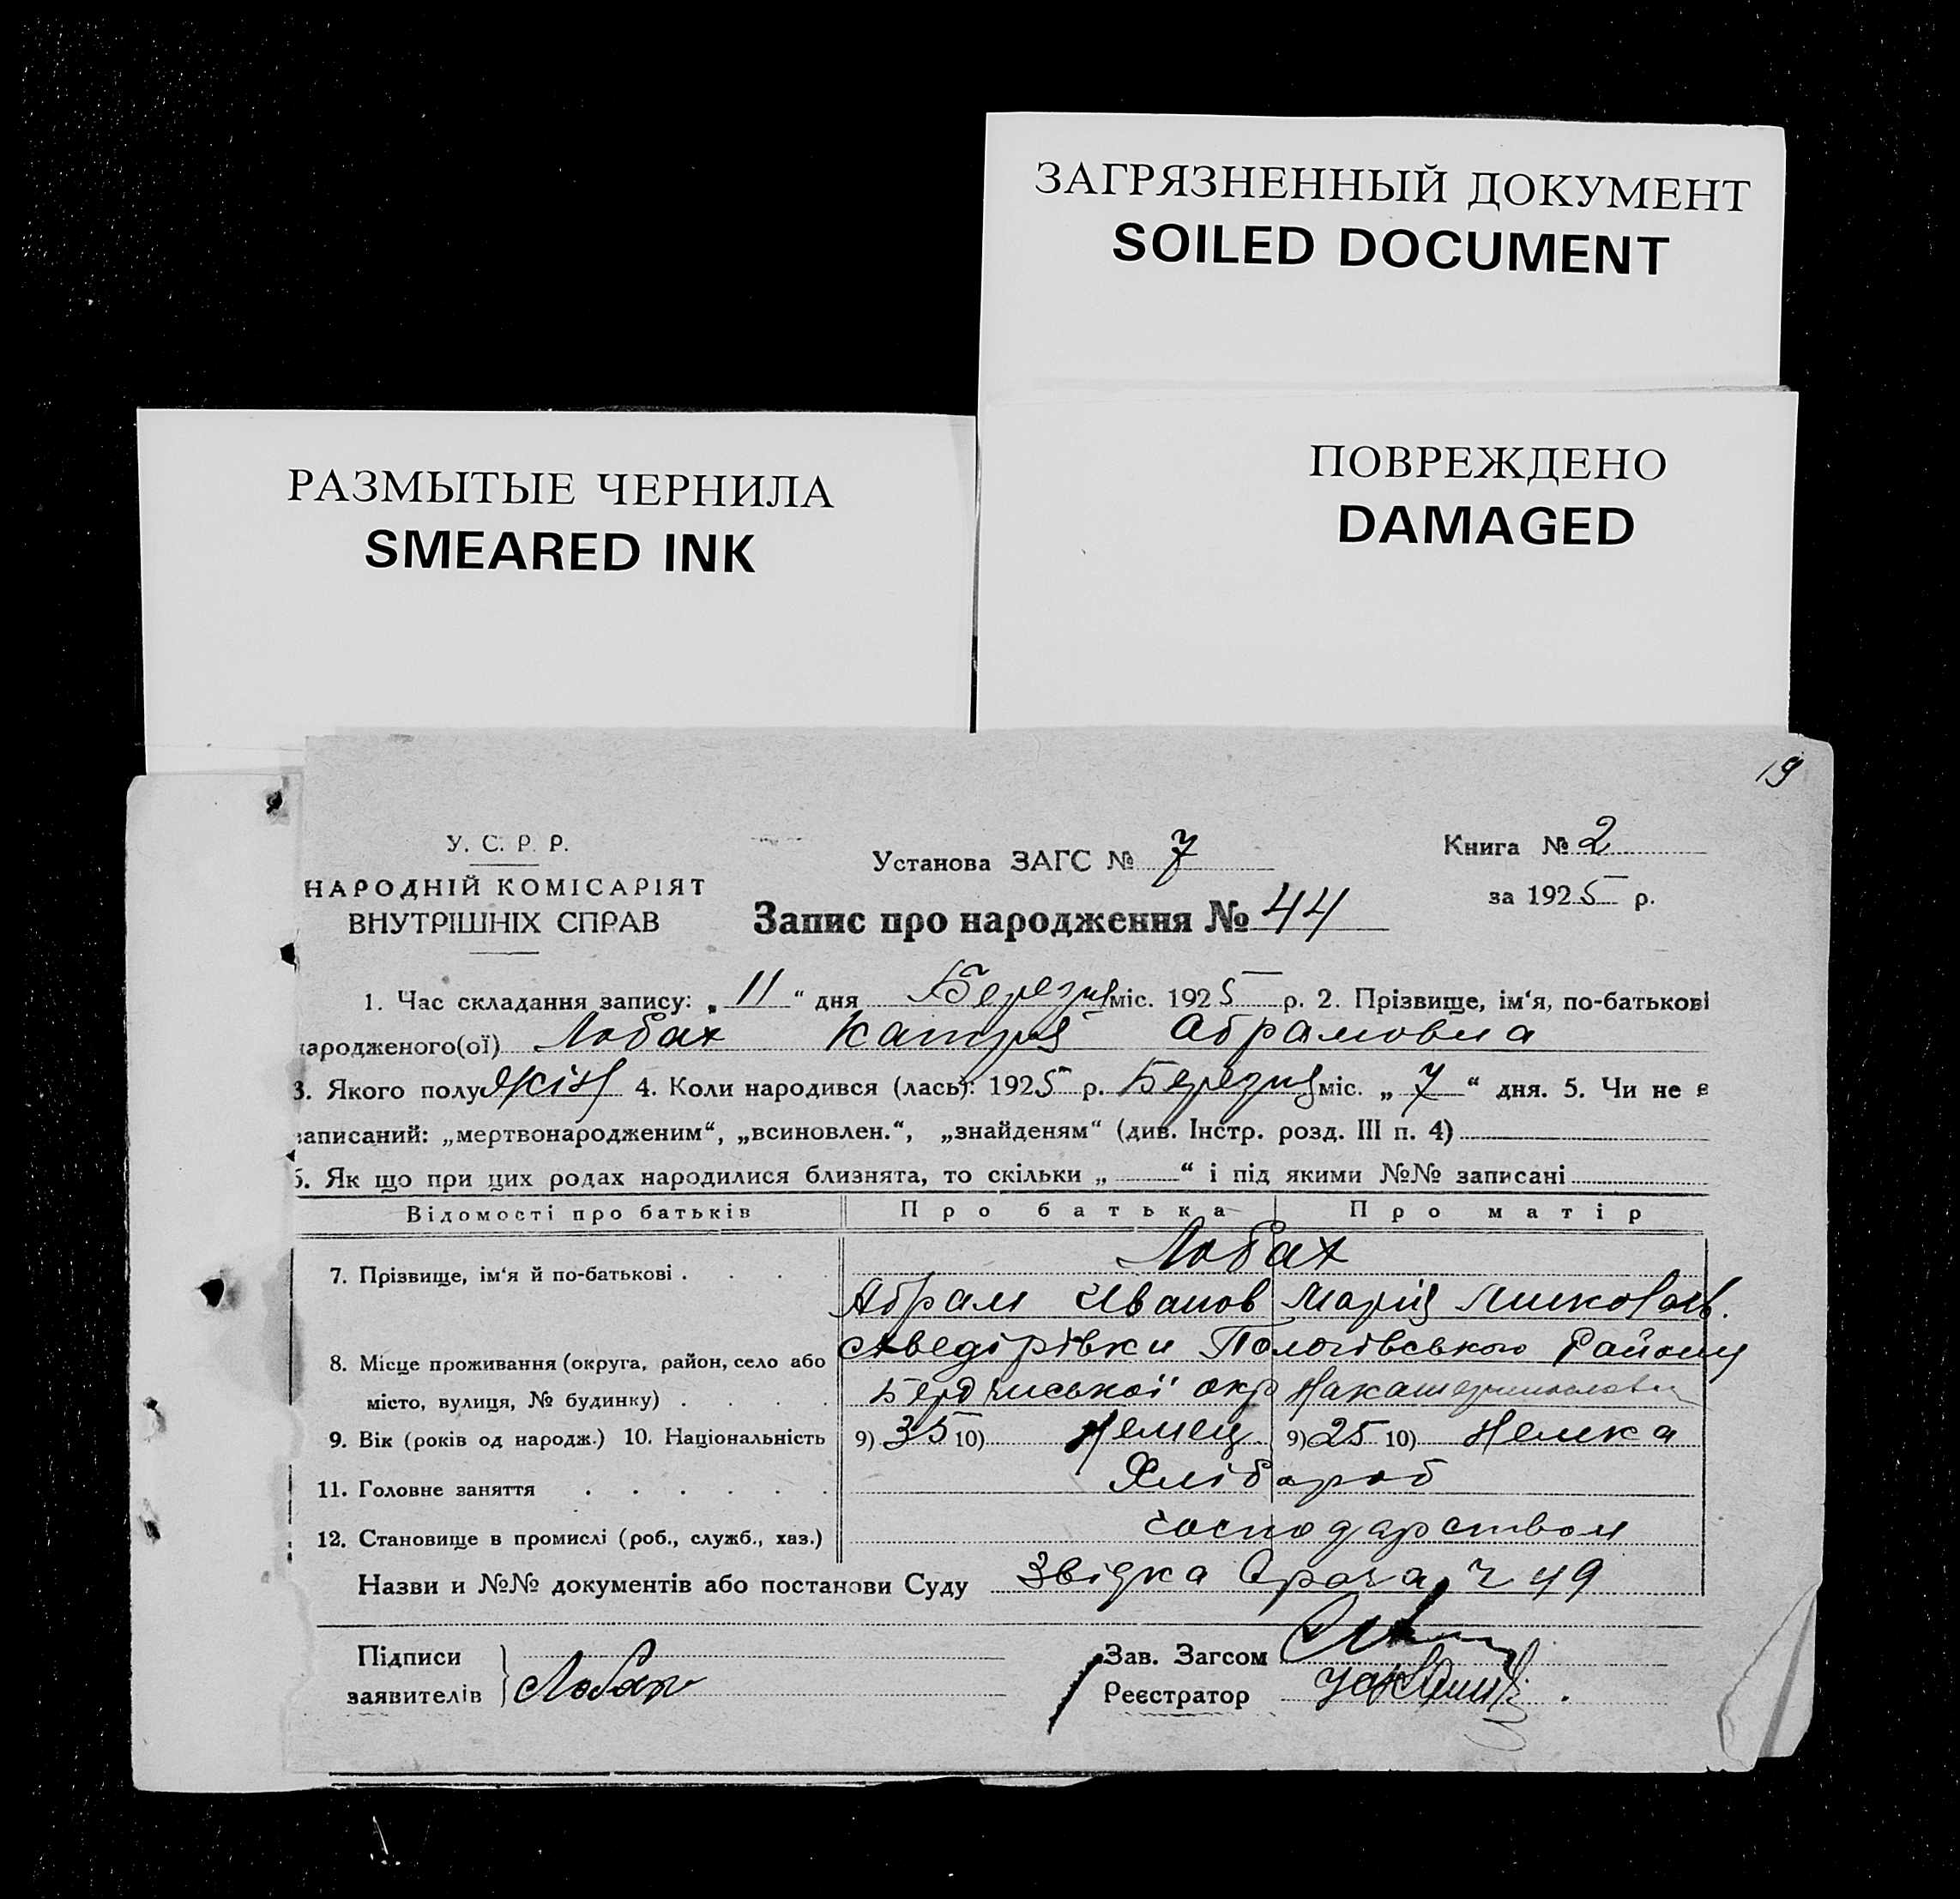 ЗАГРЯЗНЕННЫЙ ДОКУМЕНТ
SOILED DOCUMENT
РАЗМЫТЫЕ ЧЕРНИЛА
SMEARED INK
ПОВРЕЖДЕНО
DAMAGED
19
У. С. Р. Р.
НАРОДНІЙ КОМІСАРІЯТ
ВНУТРІШНІХ СПРАВ
Установа ЗАГС № 7
Запис про народження № 44
Книга № 2
за 1925 р.
1. Час складання запису: „ 11 “ дня Березня міс. 1925 р. 2. Прізвище, ім‘я, по-батькові
народженого(ої) Лобах Катря Абрамовна
3. Якого полу жін 4. Коли народився (лась): 1925 р. Березня міс. „ 7 “ дня. 5. Чи не є
записаний: „мертвонародженим“, „всиновлен.“, „знайденям“ (див. Інстр. розд. III п. 4)
6. Як що при цих родах народилися близнята, то скільки „ “ і під якими №№ записані
Відомості про батьків Про батька Про матір
7. Прізвище, ім‘я й по-батькові Лобах
Абрам Иванов Марія
8. Місце проживання (округа, район, село або Пологівського Району
місто, вулиця, № будинку) окр
9. Вік (років од народж.) 10. Національність 9) 35 10) Немец 9) 25 10) Немка
11. Головне заняття Хлібороб
12. Становище в промислі (роб., служб., хаз.) господарством
Назви и №№ документів або постанови Суду Звідка ч 49
Підписи
заявителів Лобах
Зав. Загсом
Реєстратор